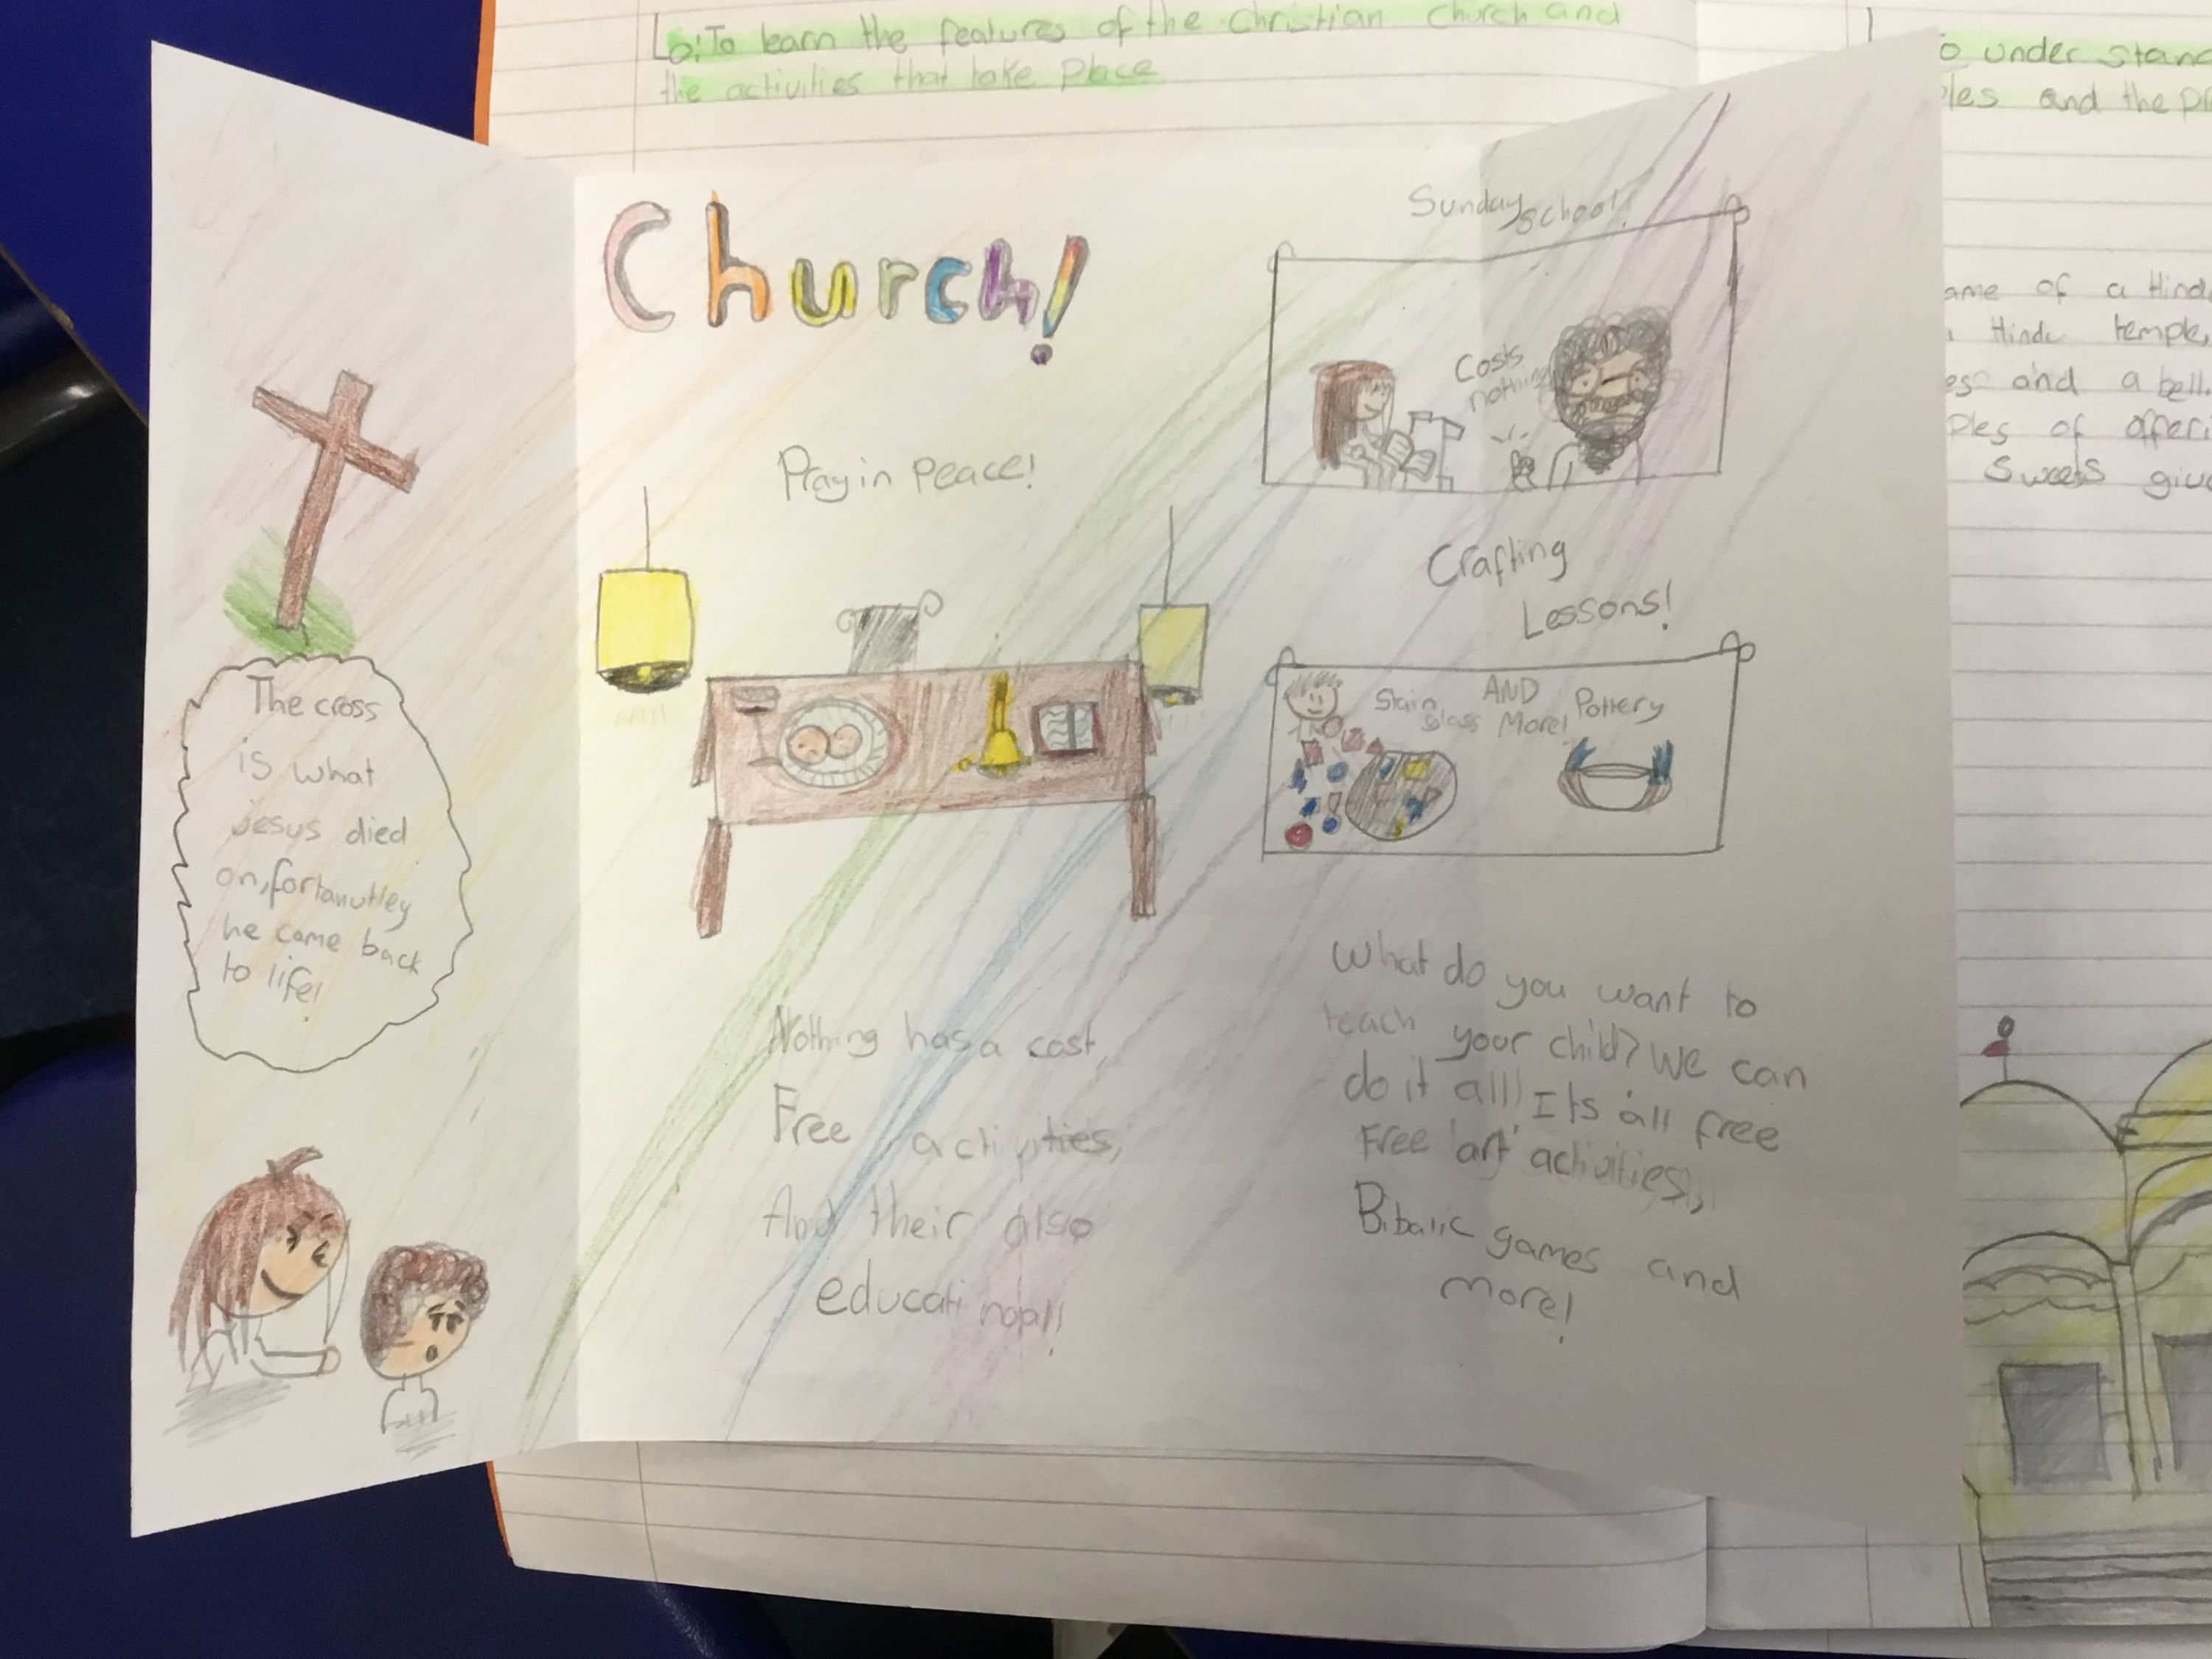 Lo: To learn the features of the christian church and
the activities that take place
Church!
Pray in peace!
The cross
is what
jesus died
on, fortanutley
he came back
to life!
Nothing has a cost,
Free activities,
And their also
educatinopl!
Sunday school!
Costs
nothing
Crafting
Lessons!
Stain
glass
AND
More!
Pottery
What do you want to
teach your child? We can
do it all! Its all free
Free 'art' activities,
Bibalic games and
more!
under stand
and the
ame of a Hindu
Hindu temple,
and a bell.
ples of offeri
Sweets